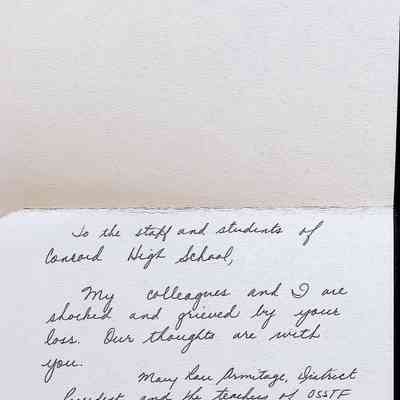 To the staff and students of
Conrord High School,
My colleagues and I are
shocked and grieved by your
loss. Our thoughts are with
you.
Mary Lou Armitage, District
President and the teachers of OSSTF